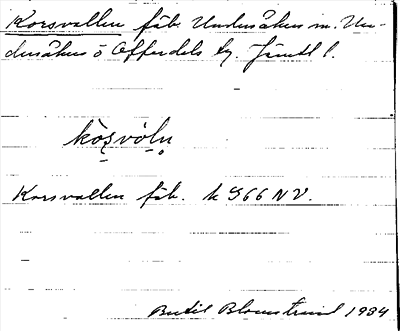 Korsvallen fäb. Undersåkers sn. Un-
dersåkers o Offerdals tg. Jämtl l.
kòṣvòlṇ
Korsvallen fäb. k 966 NV.
Bertil Blomstrand 1934